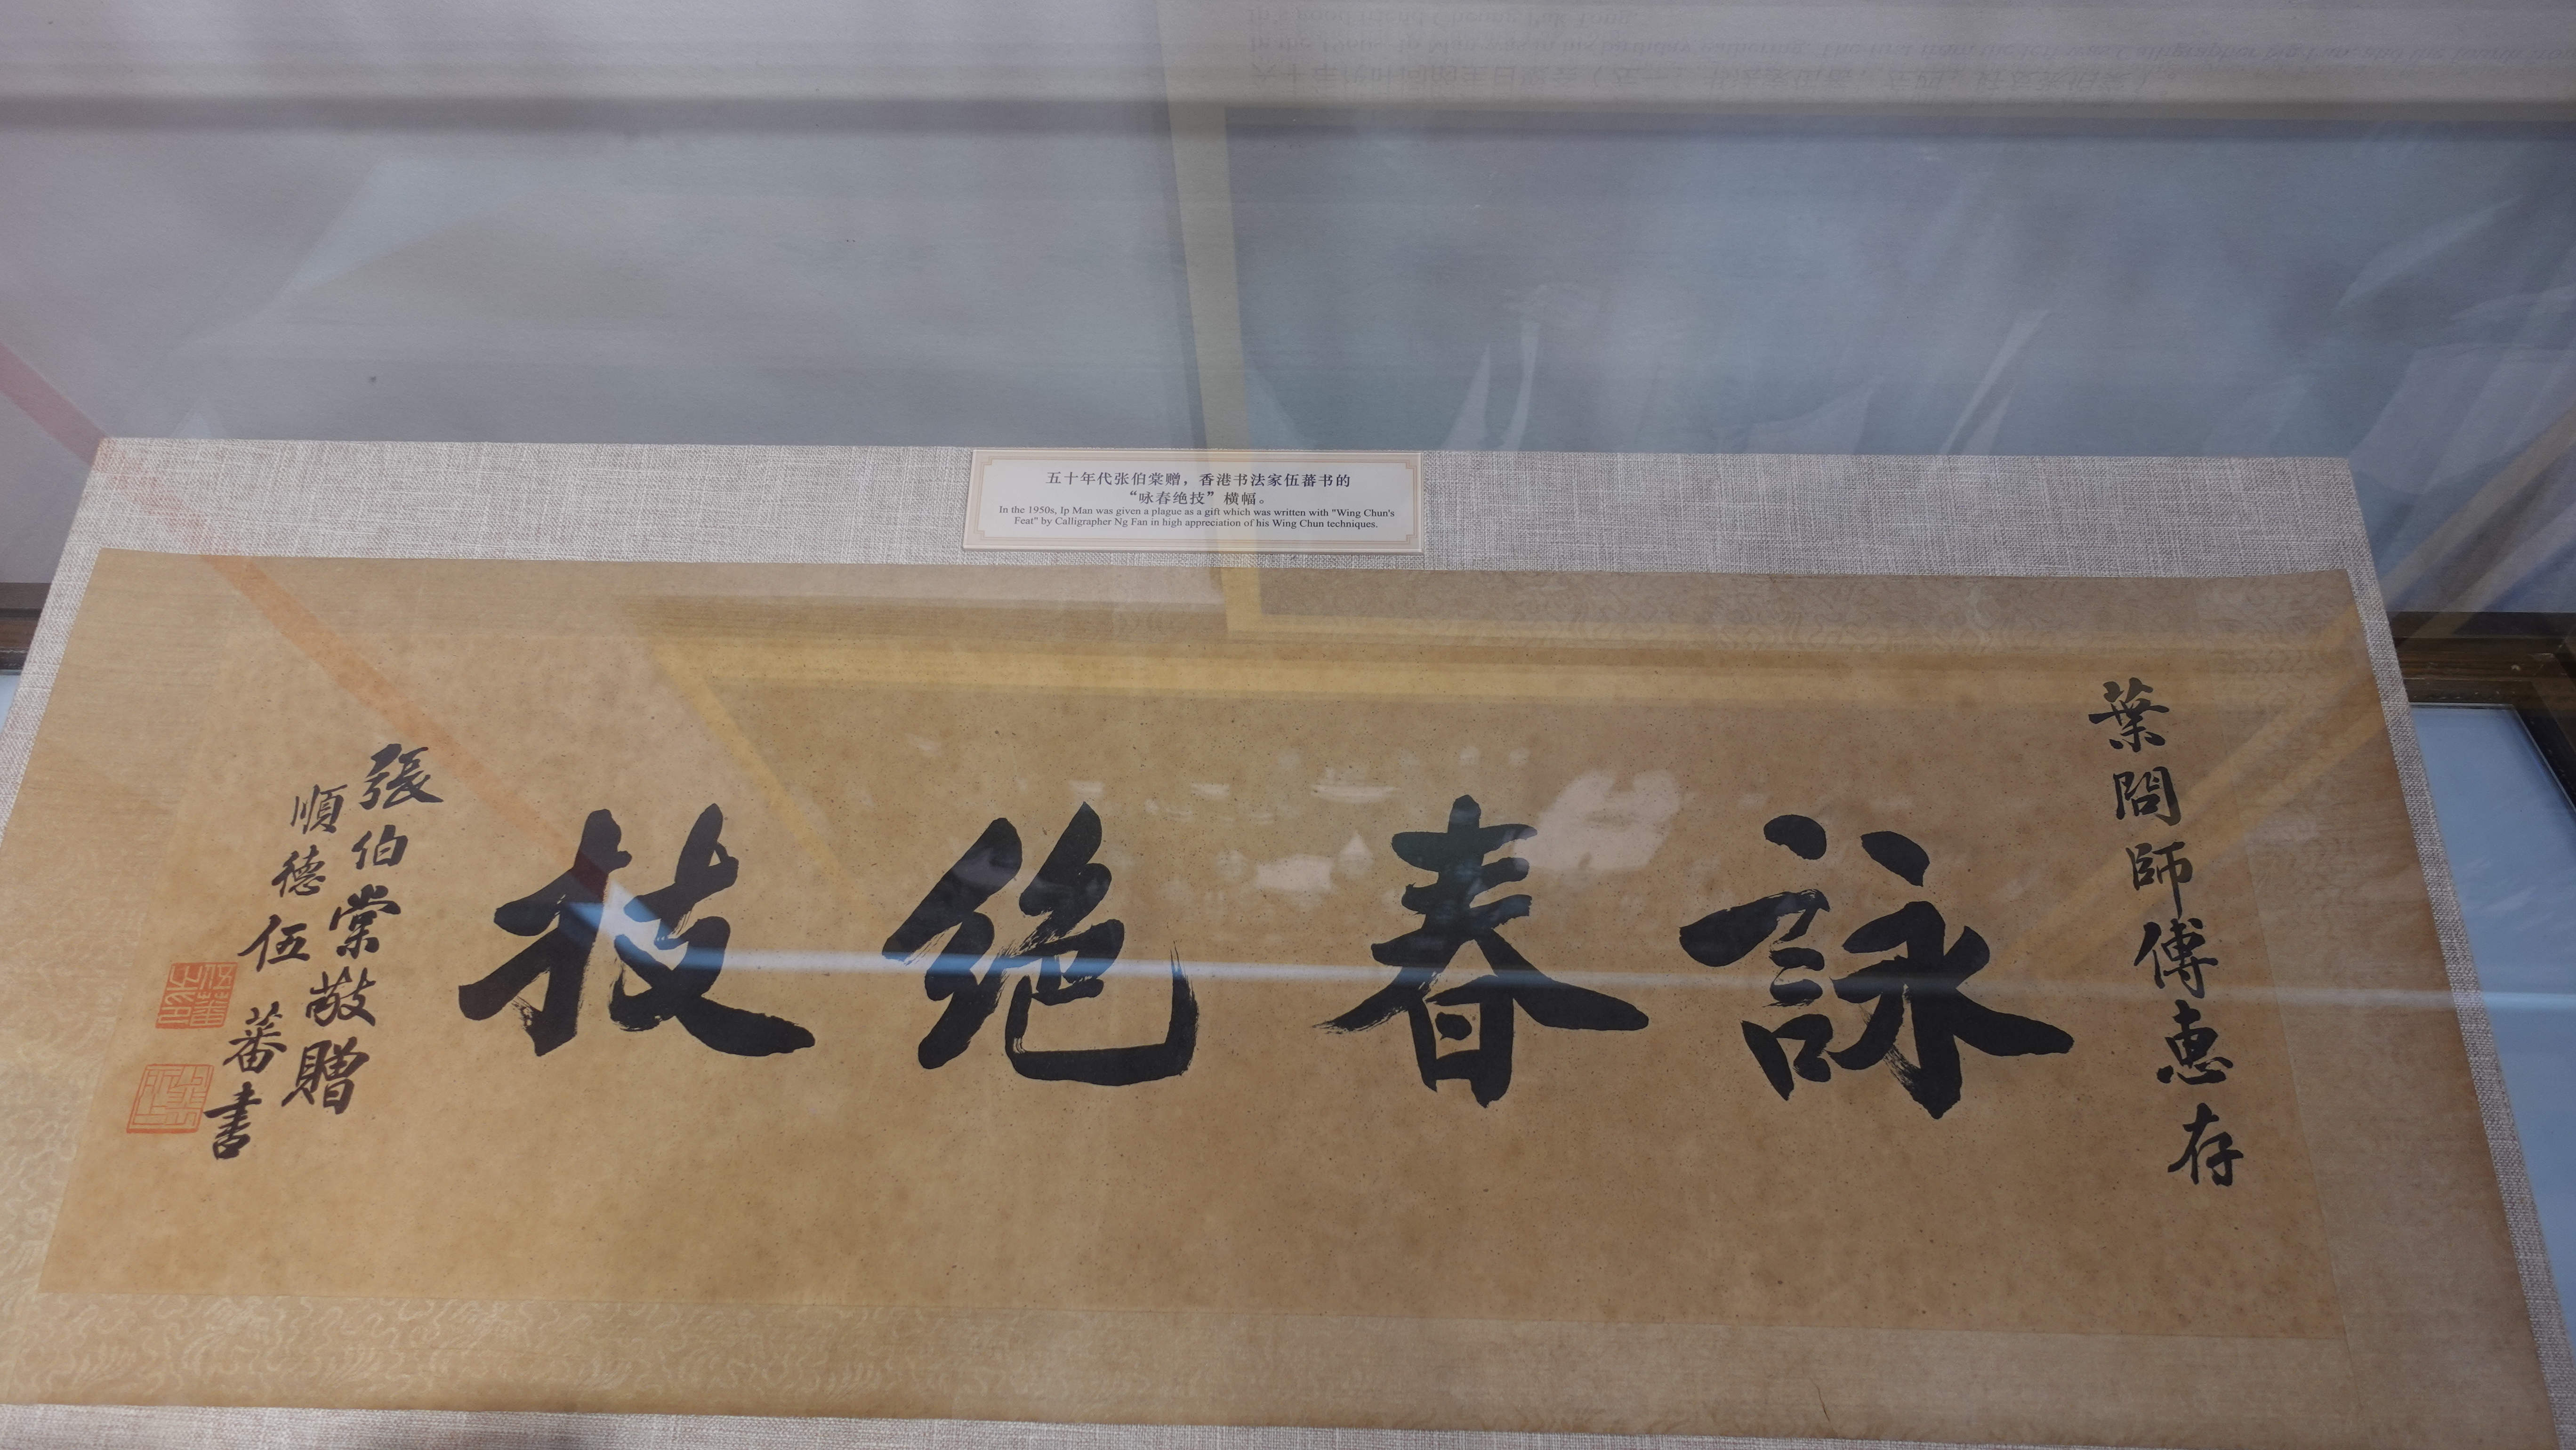 五十年代张伯棠赠，香港书法家伍蕃书的
“咏春绝技”横幅。
In the 1950s, Ip Man was given a plague as a gift which was written with "Wing Chun's
Feat" by Calligrapher Ng Fan in high appreciation of his Wing Chun techniques.
葉問師傅惠存
詠春絕技
張伯棠敬贈
順德伍蕃書